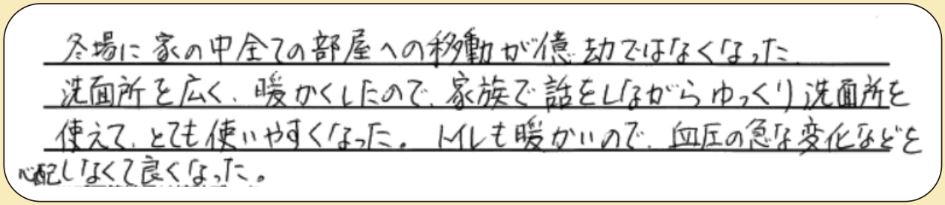 冬場に家の中全ての部屋への移動が億劫ではなくなった
洗面所を広く、暖かくしたので、家族で話をしながらゆっくり洗面所を
使えて、とても使いやすくなった。トイレも暖かいので、血圧の急な変化などを
心配しなくて良くなった。